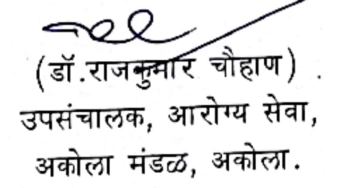 (डॉ.राजकुमार चौहाण) .
उपसंचालक, आरोग्य सेवा,
अकोला मंडळ, अकोला.